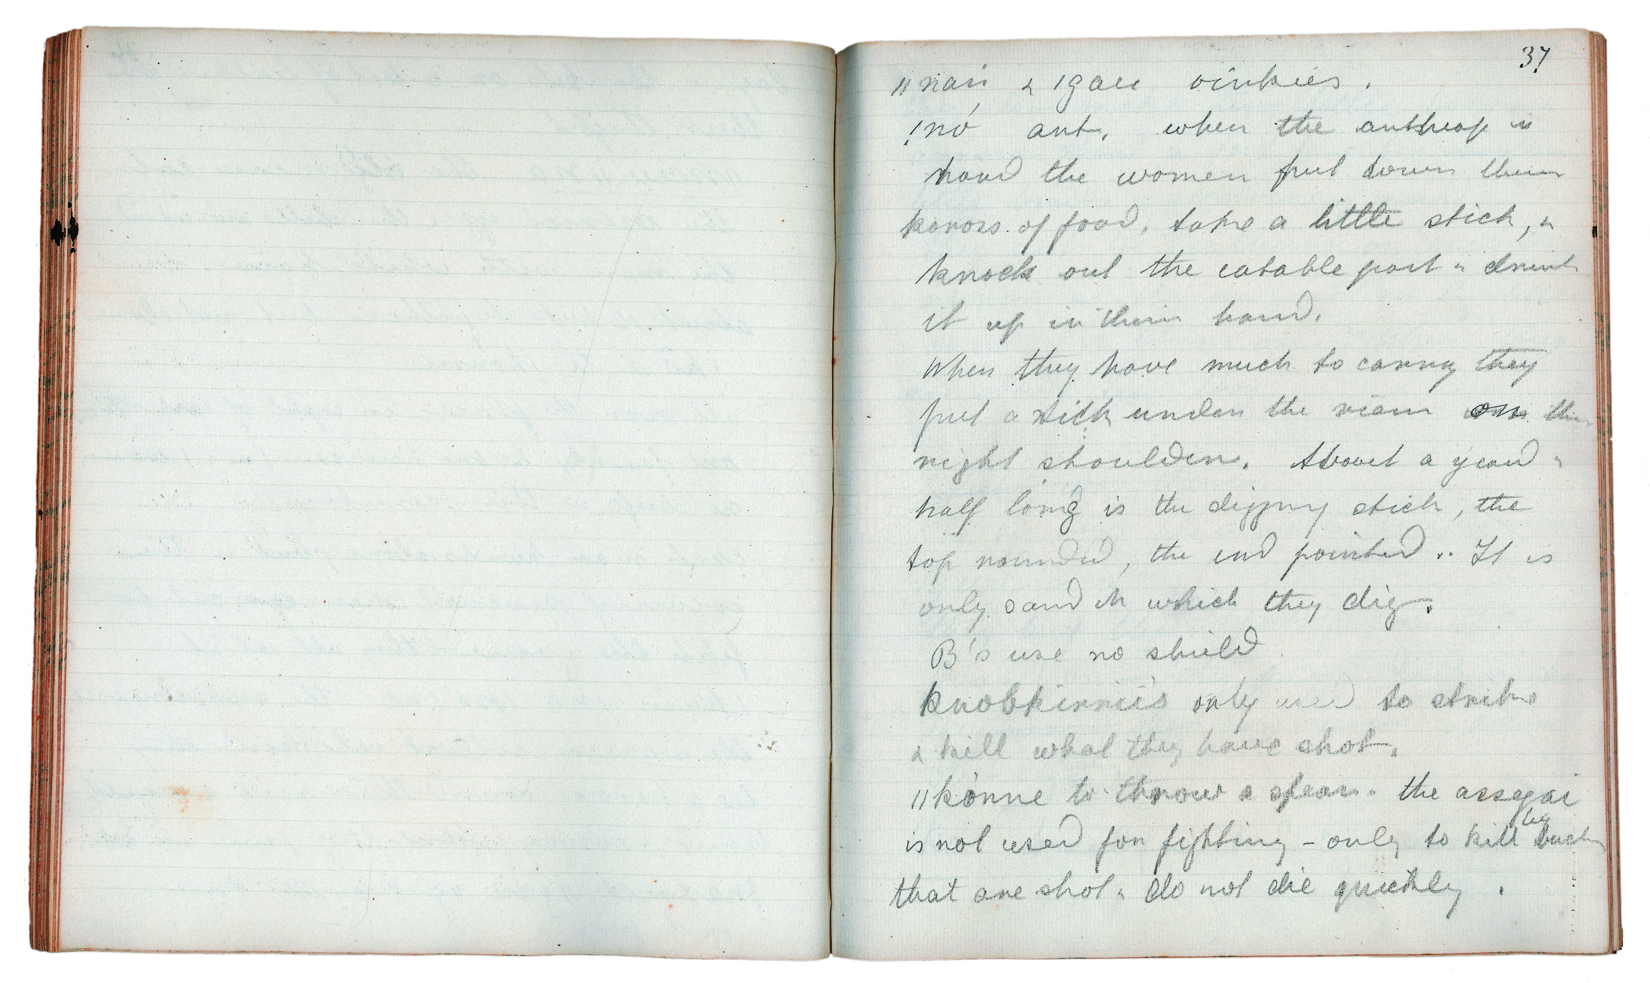 37
‖nai & ǀgau uintjies.
!nó ant. when the antheap is
hard the women put down their
kaross of food, take a little stick, &
knock out the eatable part & drink
it up in their hand.
When they have much to carry they
put a stick under the riem on their
right shoulder. About a yard &
half long is the digging stick, the
top rounded, the end pointed. It is
only sand in which they dig.
B's use no shield
Knobkirrie's only used to strike
& kill what they have shot.
‖kónne to throw a spear. the assegai
is not used for fighting - only to kill buck
that are shot & do not die quickly.